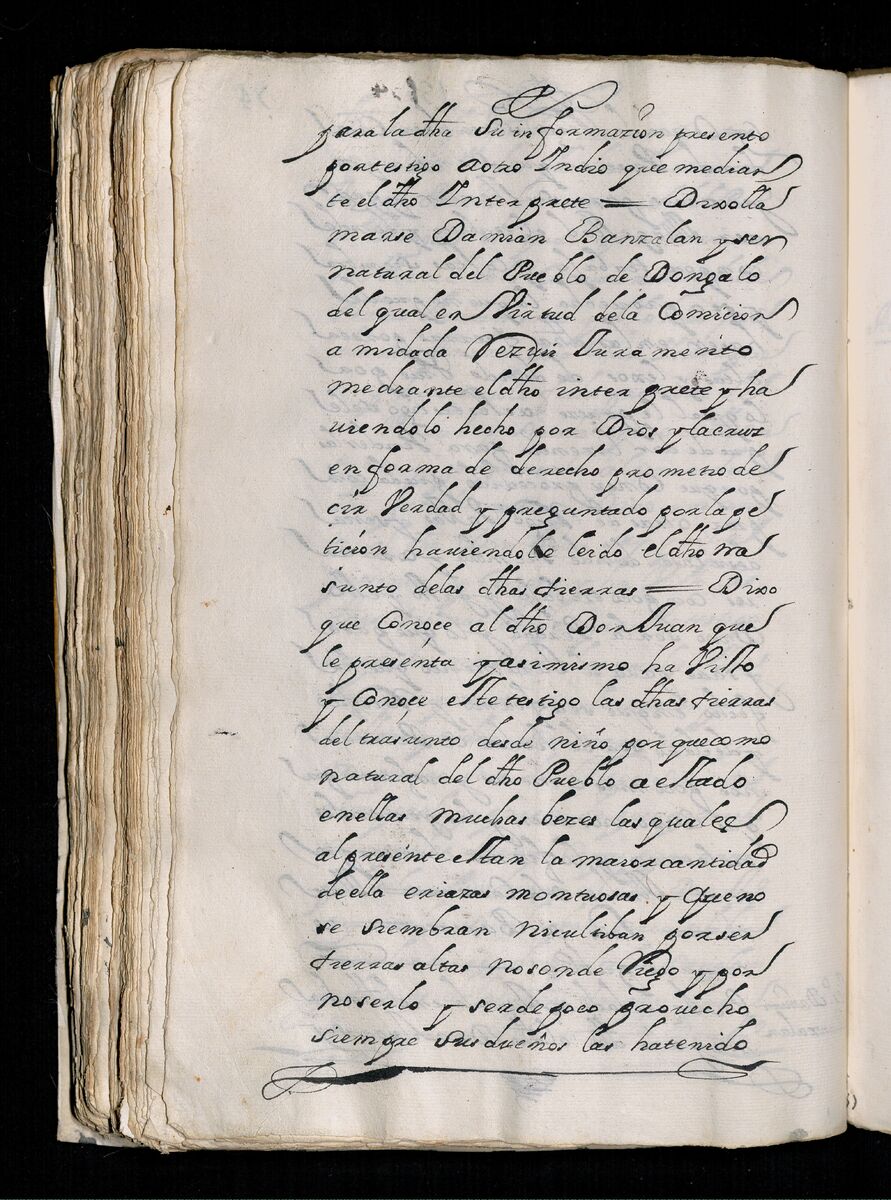 para la dha su informazion presento
por testigo a otro Indio que median
te el dho Interprete = Dixo lla
marse Damian Banzalan y ser
natural del Pueblo de Dongalo
del qual en Virtud de la Comicion
a mi dada Rezivi Juramento
mediante el dho interprete y ha
viendolo hecho por Dios y la cruz
en forma de derecho prometio de
cir Verdad y preguntado por la pe
ticion haviendole leido el dho tra
sunto de las dhas tierras = Dixo
que Conoce al dho Don Juan que
le presenta y asimismo ha Visto
y Conoce este testigo las dhas tierras
del trasunto desde niño porque como
natural del dho Pueblo a estado
en ellas muchas bezes las quales
al presente estan la maior cantidad
de ella eriazas montuosas y que no
se siembran ni cultiban por ser
tierras altas no son de Riego y por
no serlo y ser de poco provecho
siempre sus dueños las ha tenido